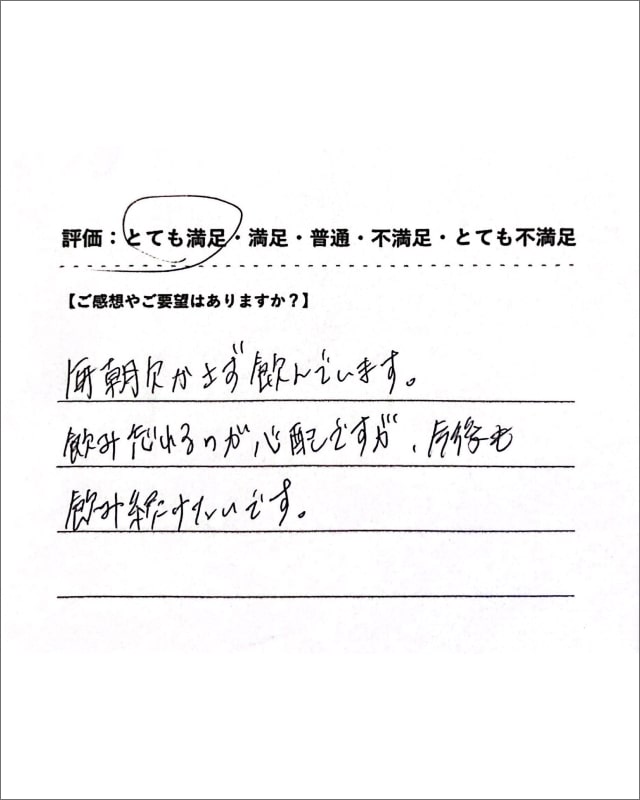 評価：とても満足・満足・普通・不満足・とても不満足
【ご感想やご要望はありますか？】
毎朝欠かさず飲んでいます。
飲み忘れるのが心配ですが、今後も
飲み続けたいです。